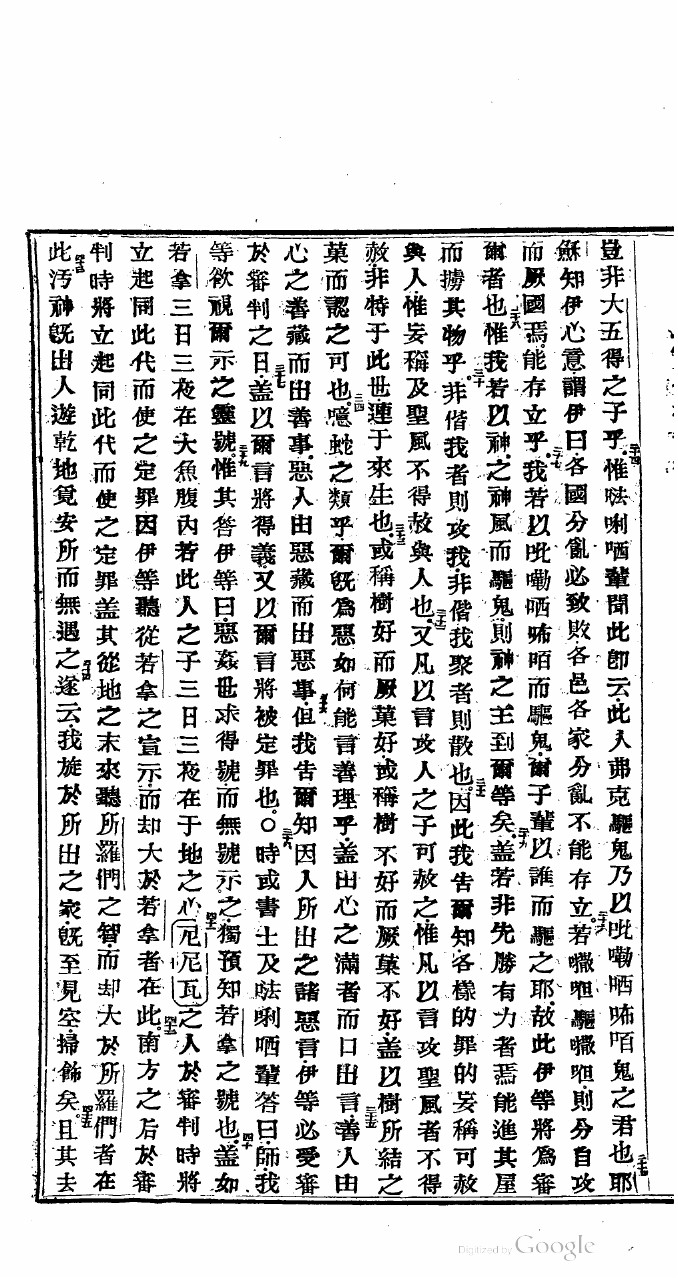 豈非大五得之子乎惟𠵽唎哂輩聞此卽云此人弗克驅鬼乃以吡嘞哂咘咟鬼之君也耶
穌知伊心意謂伊曰各國分亂必致敗各邑各家分亂不能存立若𠹌呾驅𠹌呾則分自攻
而厥國焉能存立乎我若以吡嘞哂咘咟而驅鬼爾子輩以誰而驅之耶故此伊等將爲審
爾者也惟我若以神之神風而驅鬼則神之王到爾等矣蓋若非先勝有力者焉能進其屋
而擄其物乎非偕我者則攻我非偕我聚者則散也因此我告爾知各樣的罪的妄稱可赦
與人惟妄稱及聖風不得赦與人也又凡以言攻人之子可赦之惟凡以言攻聖風者不得
赦非特于此世連于來生也或稱樹好而厥菓好或稱樹不好而厥菓不好蓋以樹所結之
菓而認之可也噫蛇之類乎爾旣爲惡如何能言善理乎蓋出心之滿者而口出言善人由
心之善藏而出善事惡人由惡藏而出惡事但我告爾知因人所出之諸惡言伊等必受審
於審判之日蓋以爾言將得義又以爾言將被定罪也〇時或書士及𠵽唎哂輩答曰師我
等欲視爾示之靈號惟其答伊等曰惡姦世求得號而無號示之獨預知若拿之號也蓋如
若拿三日三夜在大魚腹內若此人之子三日三夜在于地之心尼尼瓦之人於審判時將
立起同此代而使之定罪因伊等聽從若拿之宣示而却大於若拿者在此南方之后於審
判時將立起同此代而使之定罪蓋其從地之末來聽所羅們之智而却大於所羅們者在
此汚神旣出人遊乾地覓安所而無遇之遂云我旋於所出之家旣至見空掃飾矣且其去
Digitized by Google